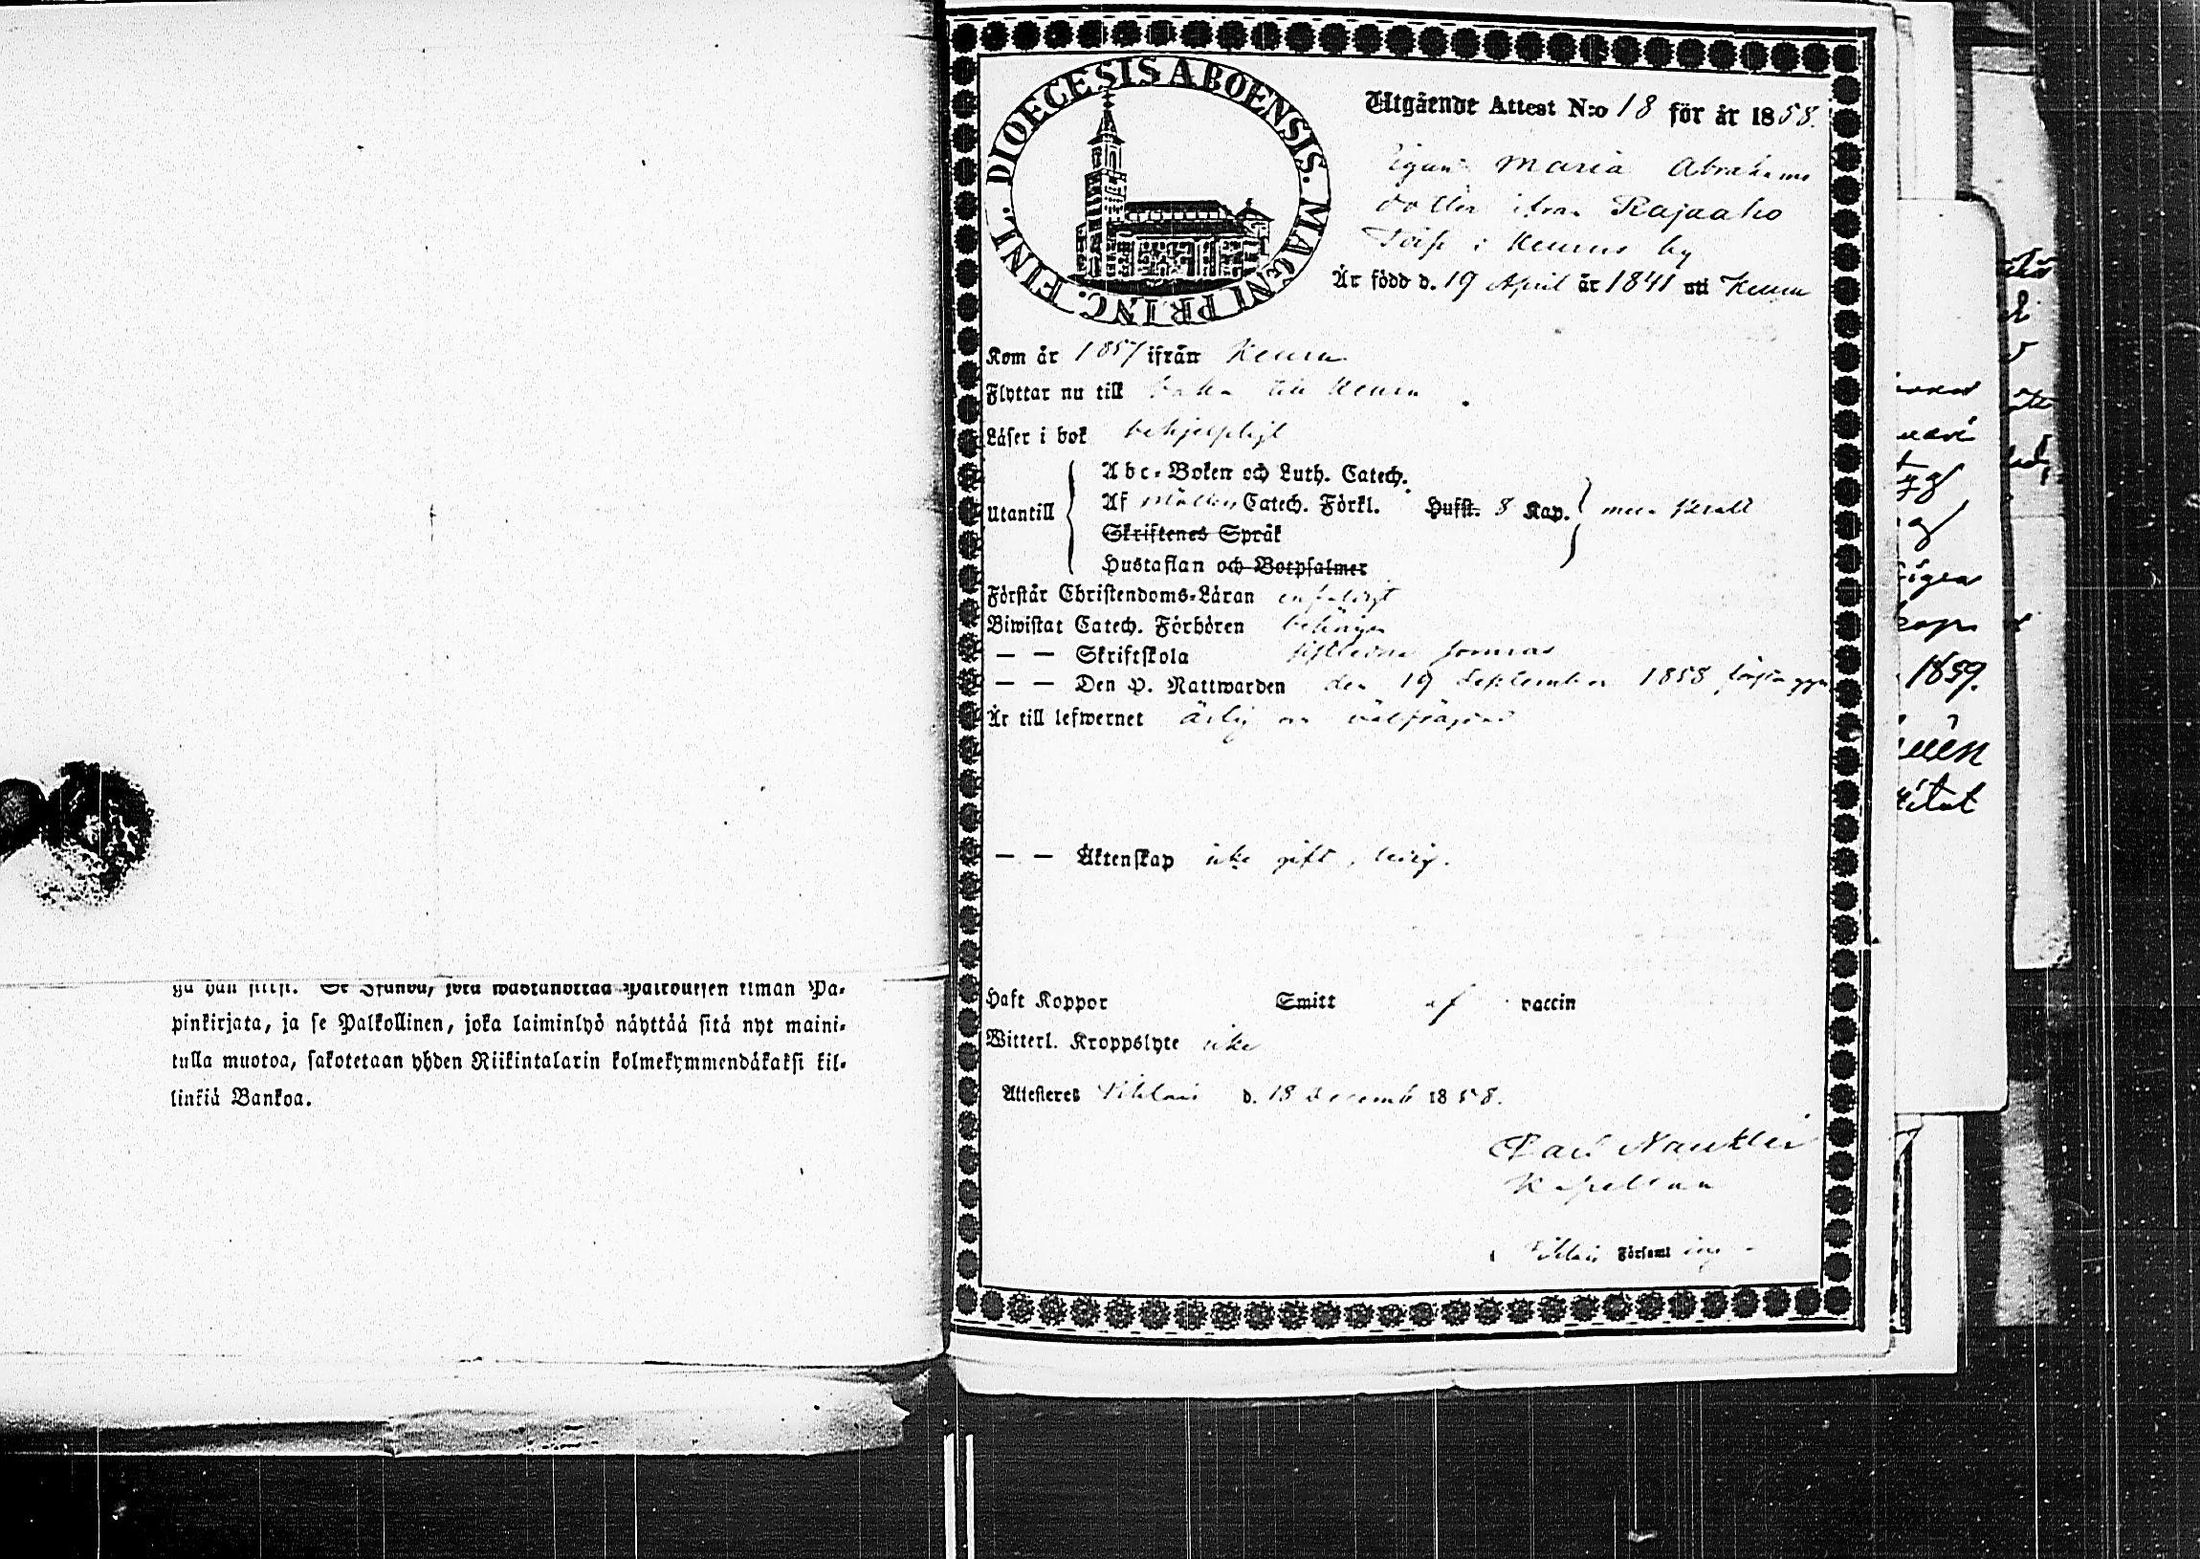 yä hän siitsi. Se Isändä, joka wastanottaa Palkollisen ilman Pa-
pinkirjata, ja se Palkollinen, joka laiminlyö näyttää sitä nyt maini-
tulla muotoa, sakotetaan yhden Riikintalarin kolmekymmendäkaksi kil-
linkiä Bankoa.
DIOECESIS ABOENSIS. MAGNI PRINC. FINL.
Utgående Attest N:o 18 för år 1858.
Pigan Maria Abrahams
dotter ifrån Rajaaho
Torp i Keuru by
Är född d. 19 April år 1841 uti Keuru
Kom år 1857 ifrån Keuru
Flyttar nu till baka till Keuru
Läser i bok behjelpligt
Abc-Boken och Luth. Catech.
Utantill Af Möllers Catech. Förkl. Hufst. 8 Kap.
Skriftenes Språk
Hustaflan och Botpsalmer
Förstår Christendoms-Läran enfaldigt
Biwistat Catech. Förhören behörigen
— — Skriftskola sistledne sommar
— — Den H. Nattwarden den 19 September 1858 första ggn
Är till lefwernet ärlig och välfrägdad
— — Äktenskap icke gift, ledig.
Haft Koppor Smitt af vaccin
Witterl. Kroppslyte icke
Attesteres d. 18 Decemb 1858.
Carl Nauklér
Kapellan
i Församling
1859.